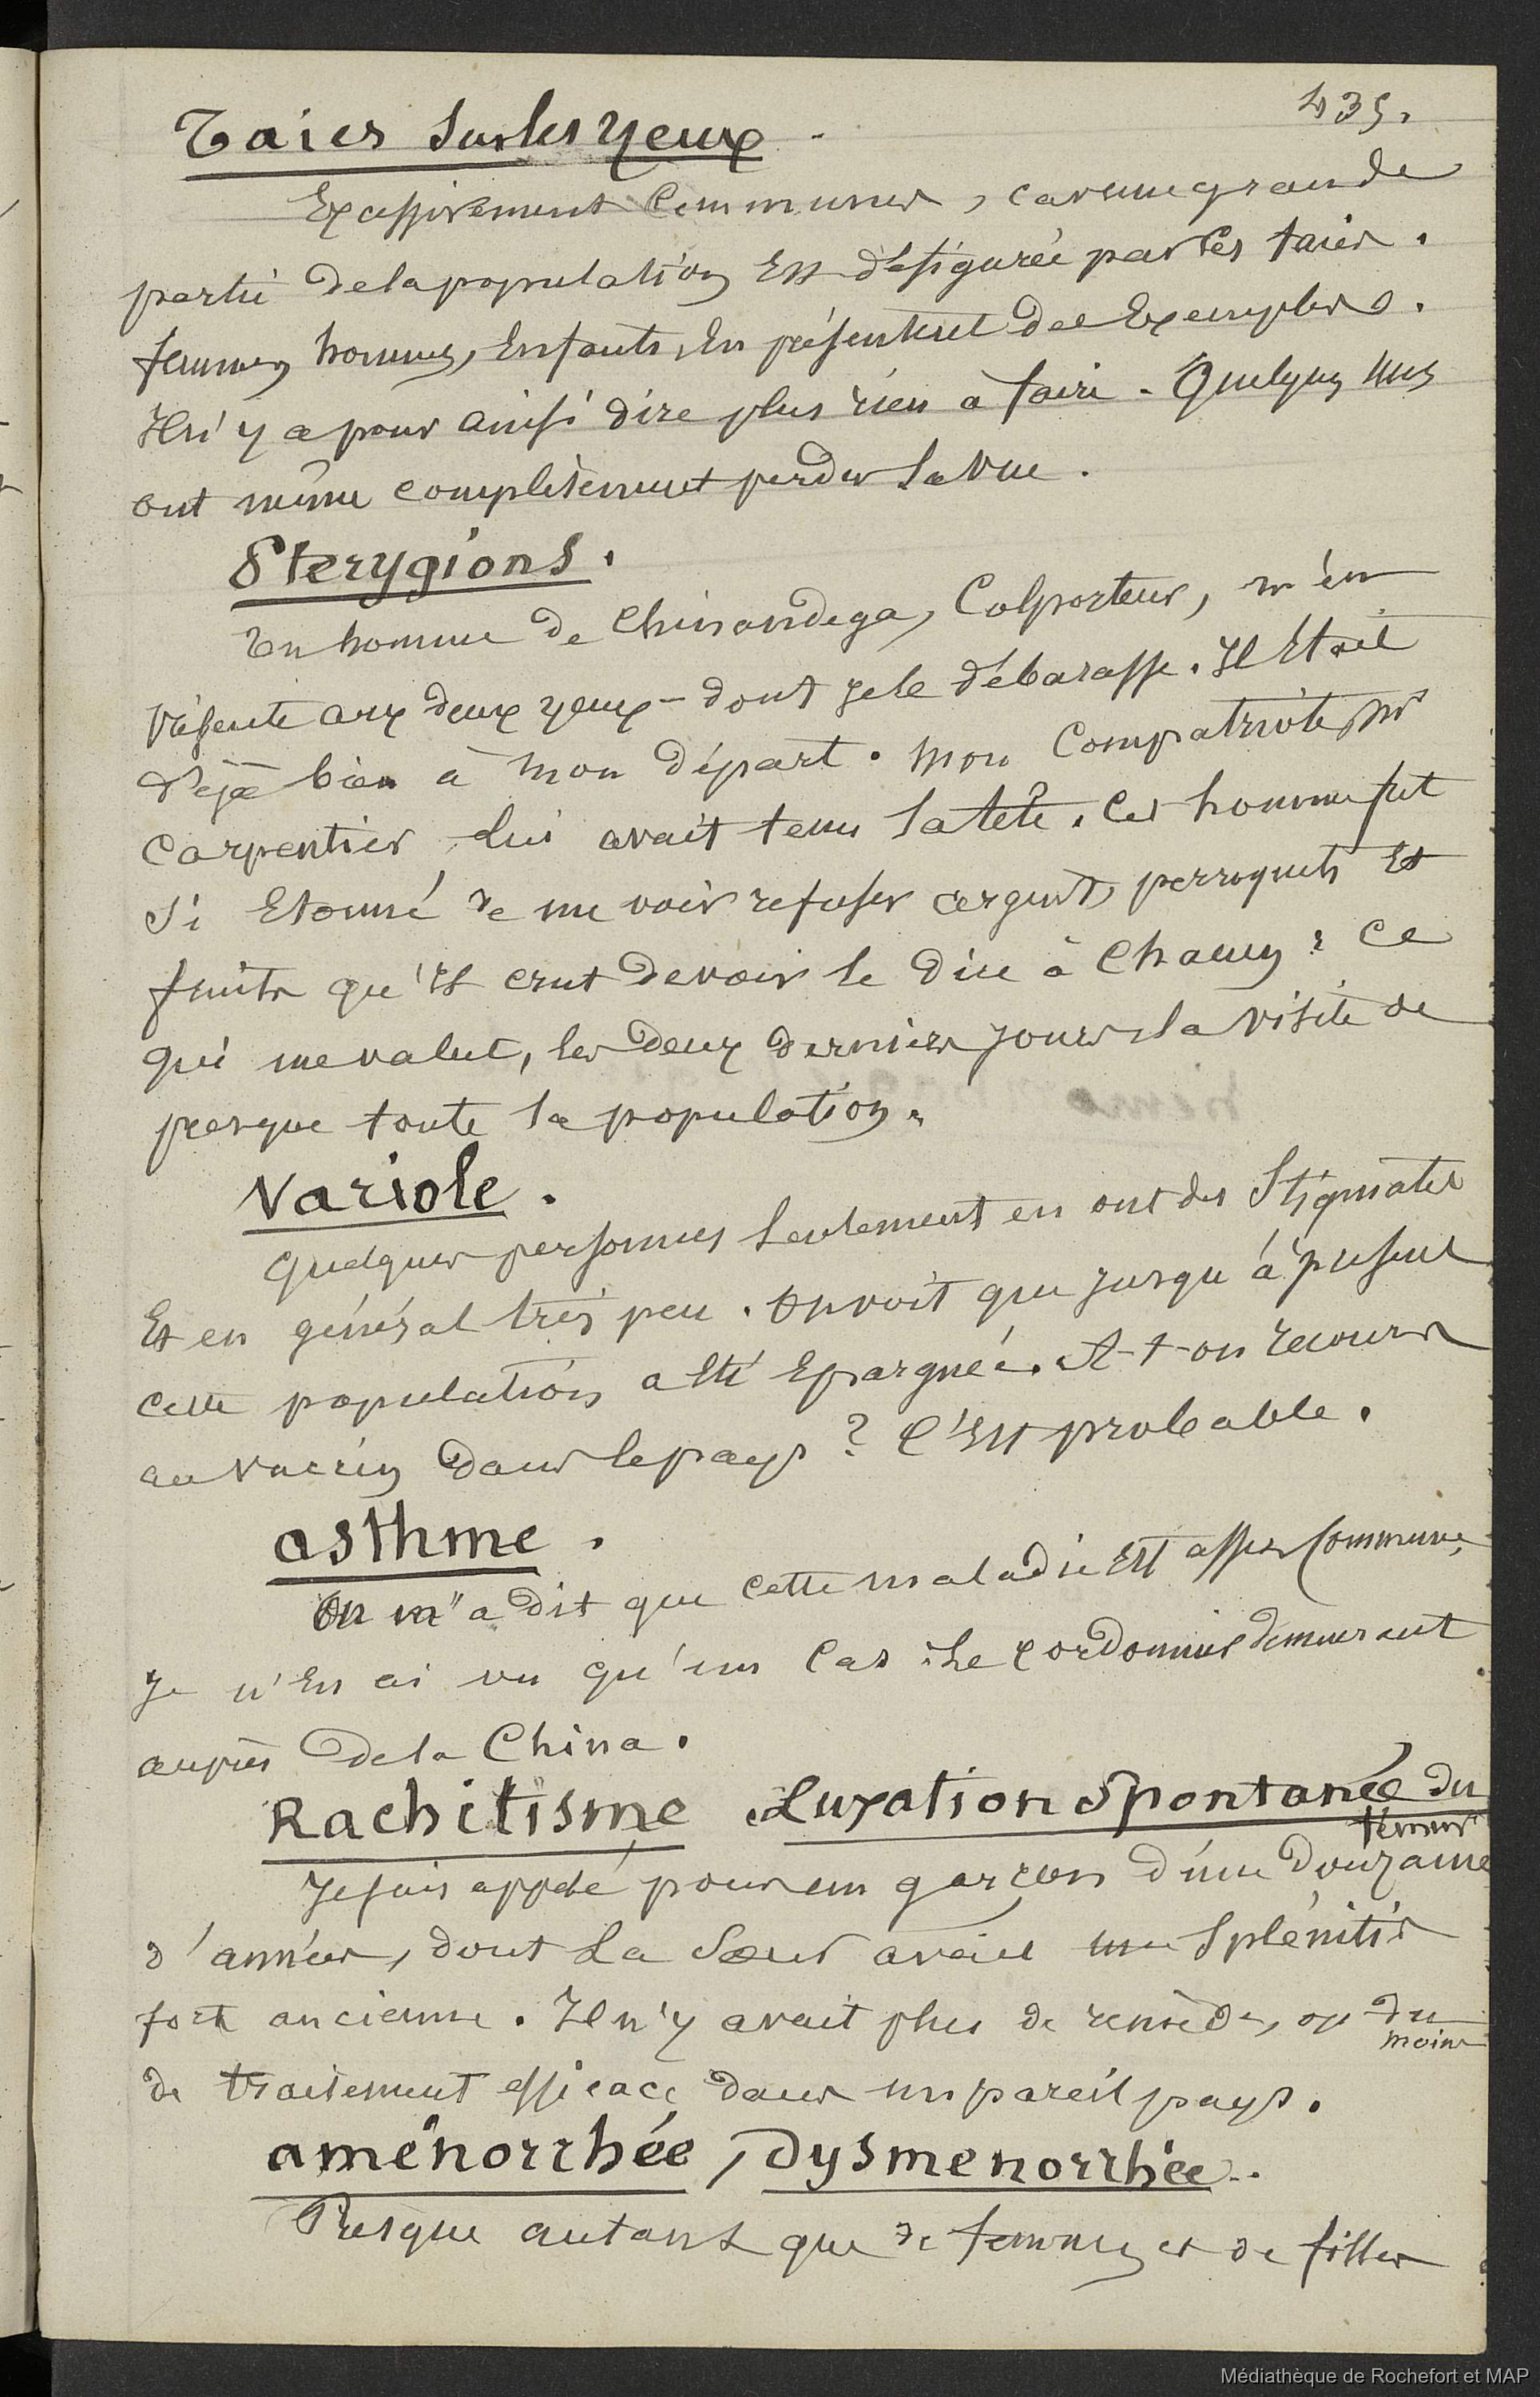 435.
Taies sur les yeux.
Excessivement communes, car une grande
partie de la population est défigurée par les taies.
femmes, hommes, Enfants, En présentent des Exemples.
Il n'y a pour ainsi dire plus rien à faire. Quelques uns
ont même complètement perdu la vue.
Pterygions.
Un homme de Chinandega, Colporteur, m'en
présente aux deux yeux – dont je le débarasse. Il Etait
déjà bien à mon départ. Mon Compatriote Mr
Carpentier lui avait tenu la tête. Cet homme fut
si Etonné de me voir refuser argent, perroquets Et
fruits qu'il crut devoir le dire à chacun : Ce
qui me valut, les deux derniers jours la visite de
presque toute la population.
Variole.
Quelques personnes seulement en ont des Stigmates
Et en général très peu. On voit que jusqu'à présent
cette population a été Epargnée. A-t-on recours
au vaccin dans le pays ? C'Est probable.
asthme.
On m'a dit que cette maladie Est assez Commune,
Je n'En ai vu qu'un Cas : Le cordonnier demeurant
auprès de la China.
Rachitisme. Luxation Spontanée du
fémur
Je suis appelé pour un garçon d'une douzaine
d'années, dont la Sœur avait une Splénitis
fort ancienne. Il n'y avait plus de remède, ou du
moins
de traitement efficace dans un pareil pays.
aménorrhée, Dysmenorrhée.
Presque autant que de femmes et de filles